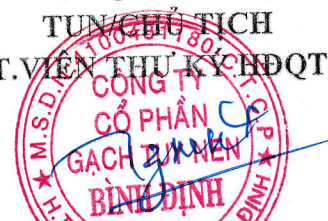 TUN/CHỦ TỊCH
T.VIÊN THƯ KÝ HĐQT
M.S.D.N: 4100481780.C.T.C.P
CÔNG TY
CỔ PHẦN
GẠCH TUYNEN
BÌNH ĐỊNH